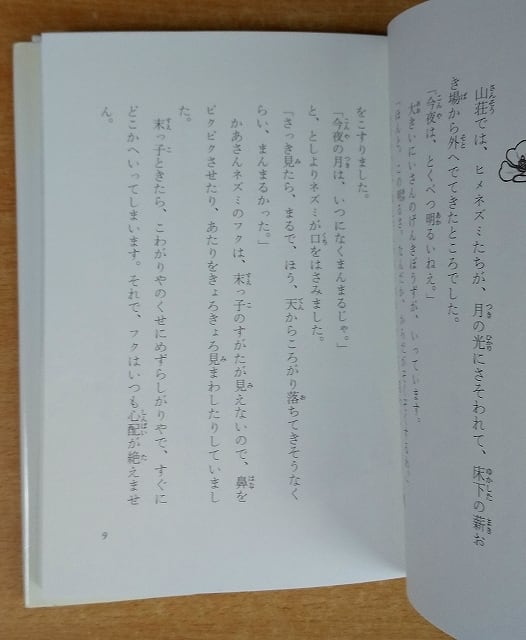 山荘では、ヒメネズミたちが、月の光にさそわれて、床下の薪お
き場から外へでてきたところでした。
「今夜は、とくべつ明るいねえ。」
大きいにいさんのげんきぼうずが、いっています。
「ほんと、この明るさ、なんだか、
をこすりました。
「今夜の月は、いつになくまんまるじゃ。」
と、としよりネズミが口をはさみました。
「さっき見たら、まるで、ほう、天からころがり落ちてきそうなく
らい、まんまるかった。」
かあさんネズミのフクは、末っ子のすがたが見えないので、鼻を
ピクピクさせたり、あたりをきょろきょろ見まわしたりしていまし
た。
末っ子ときたら、こわがりやのくせにめずらしがりやで、すぐに
どこかへいってしまいます。それで、フクはいつも心配が絶えませ
ん。
9